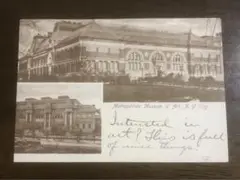 Metropolitan Museum of Art, N. Y. City
Interested in
art? This is full
of nice things.